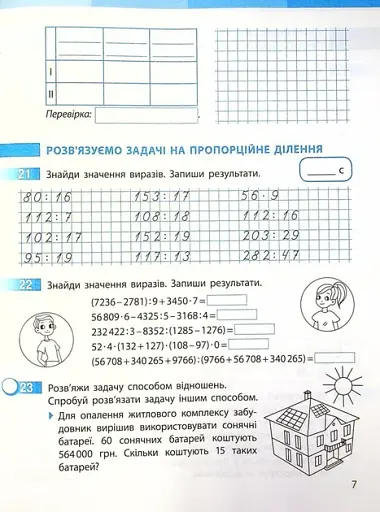 I
II
Перевірка:
РОЗВ'ЯЗУЄМО ЗАДАЧІ НА ПРОПОРЦІЙНЕ ДІЛЕННЯ
21 Знайди значення виразів. Запиши результати.
с
80 : 16 153 : 17 56 · 9
112 : 7 108 : 18 112 : 16
102 : 17 152 : 19 203 : 29
95 : 19 117 : 13 282 : 47
22 Знайди значення виразів. Запиши результати.
(7236 – 2781) : 9 + 3450 · 7 =
56 809 · 6 – 4325 : 5 – 3168 : 4 =
232 422 : 3 – 8352 : (1285 – 1276) =
52 · 4 · (132 + 127) · (108 – 97) · 0 =
(56 708 + 340 265 + 9766) : (9766 + 56 708 + 340 265) =
23 Розв'яжи задачу способом відношень.
Спробуй розв'язати задачу іншим способом.
Для опалення житлового комплексу забу-
довник вирішив використовувати сонячні
батареї. 60 сонячних батарей коштують
564 000 грн. Скільки коштують 15 таких
батарей?
7